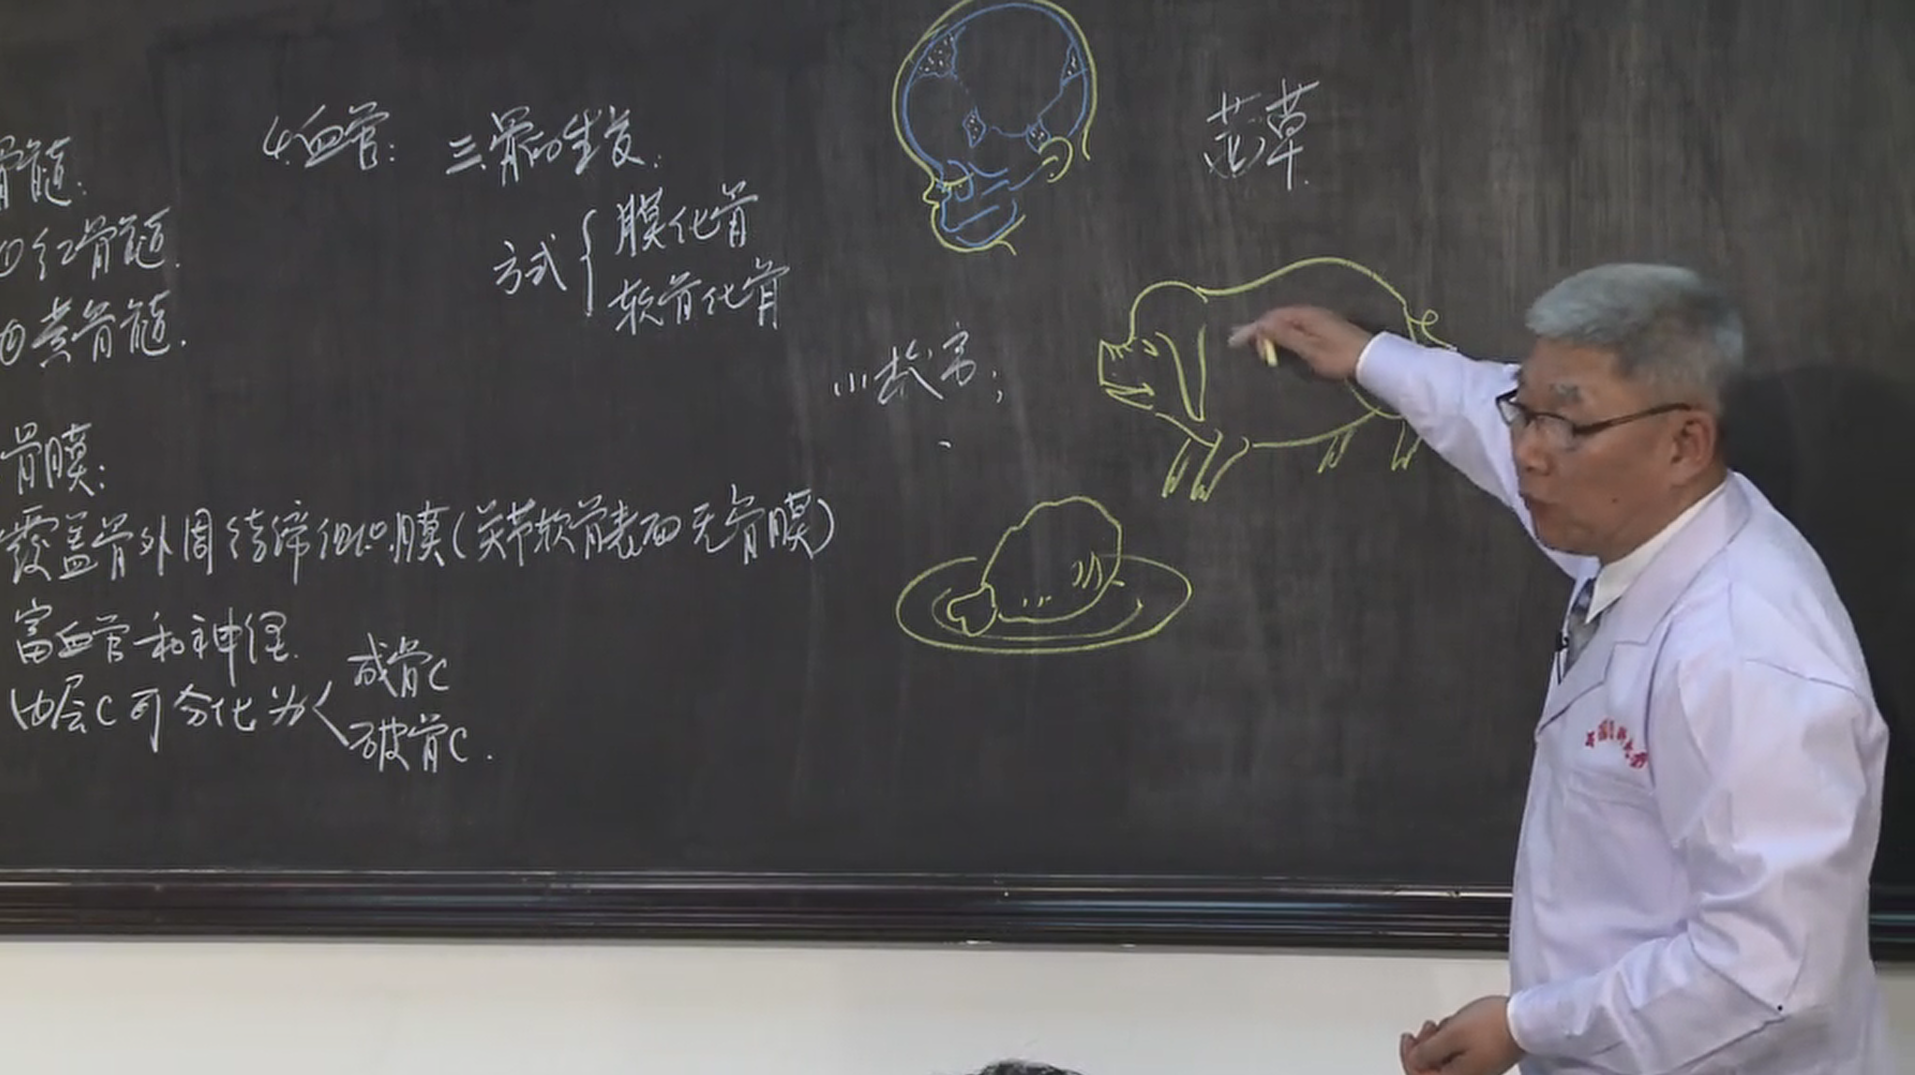 骨髓:
①红骨髓.
②黄骨髓.
骨膜:
覆盖骨外周结缔组织膜(关节软骨表面无骨膜)
富血管和神经.
内层C可分化为
成骨C
破骨C.
4.血管:
三.骨的生发.
方式
膜化骨
软骨化骨
小故事:
茜草.